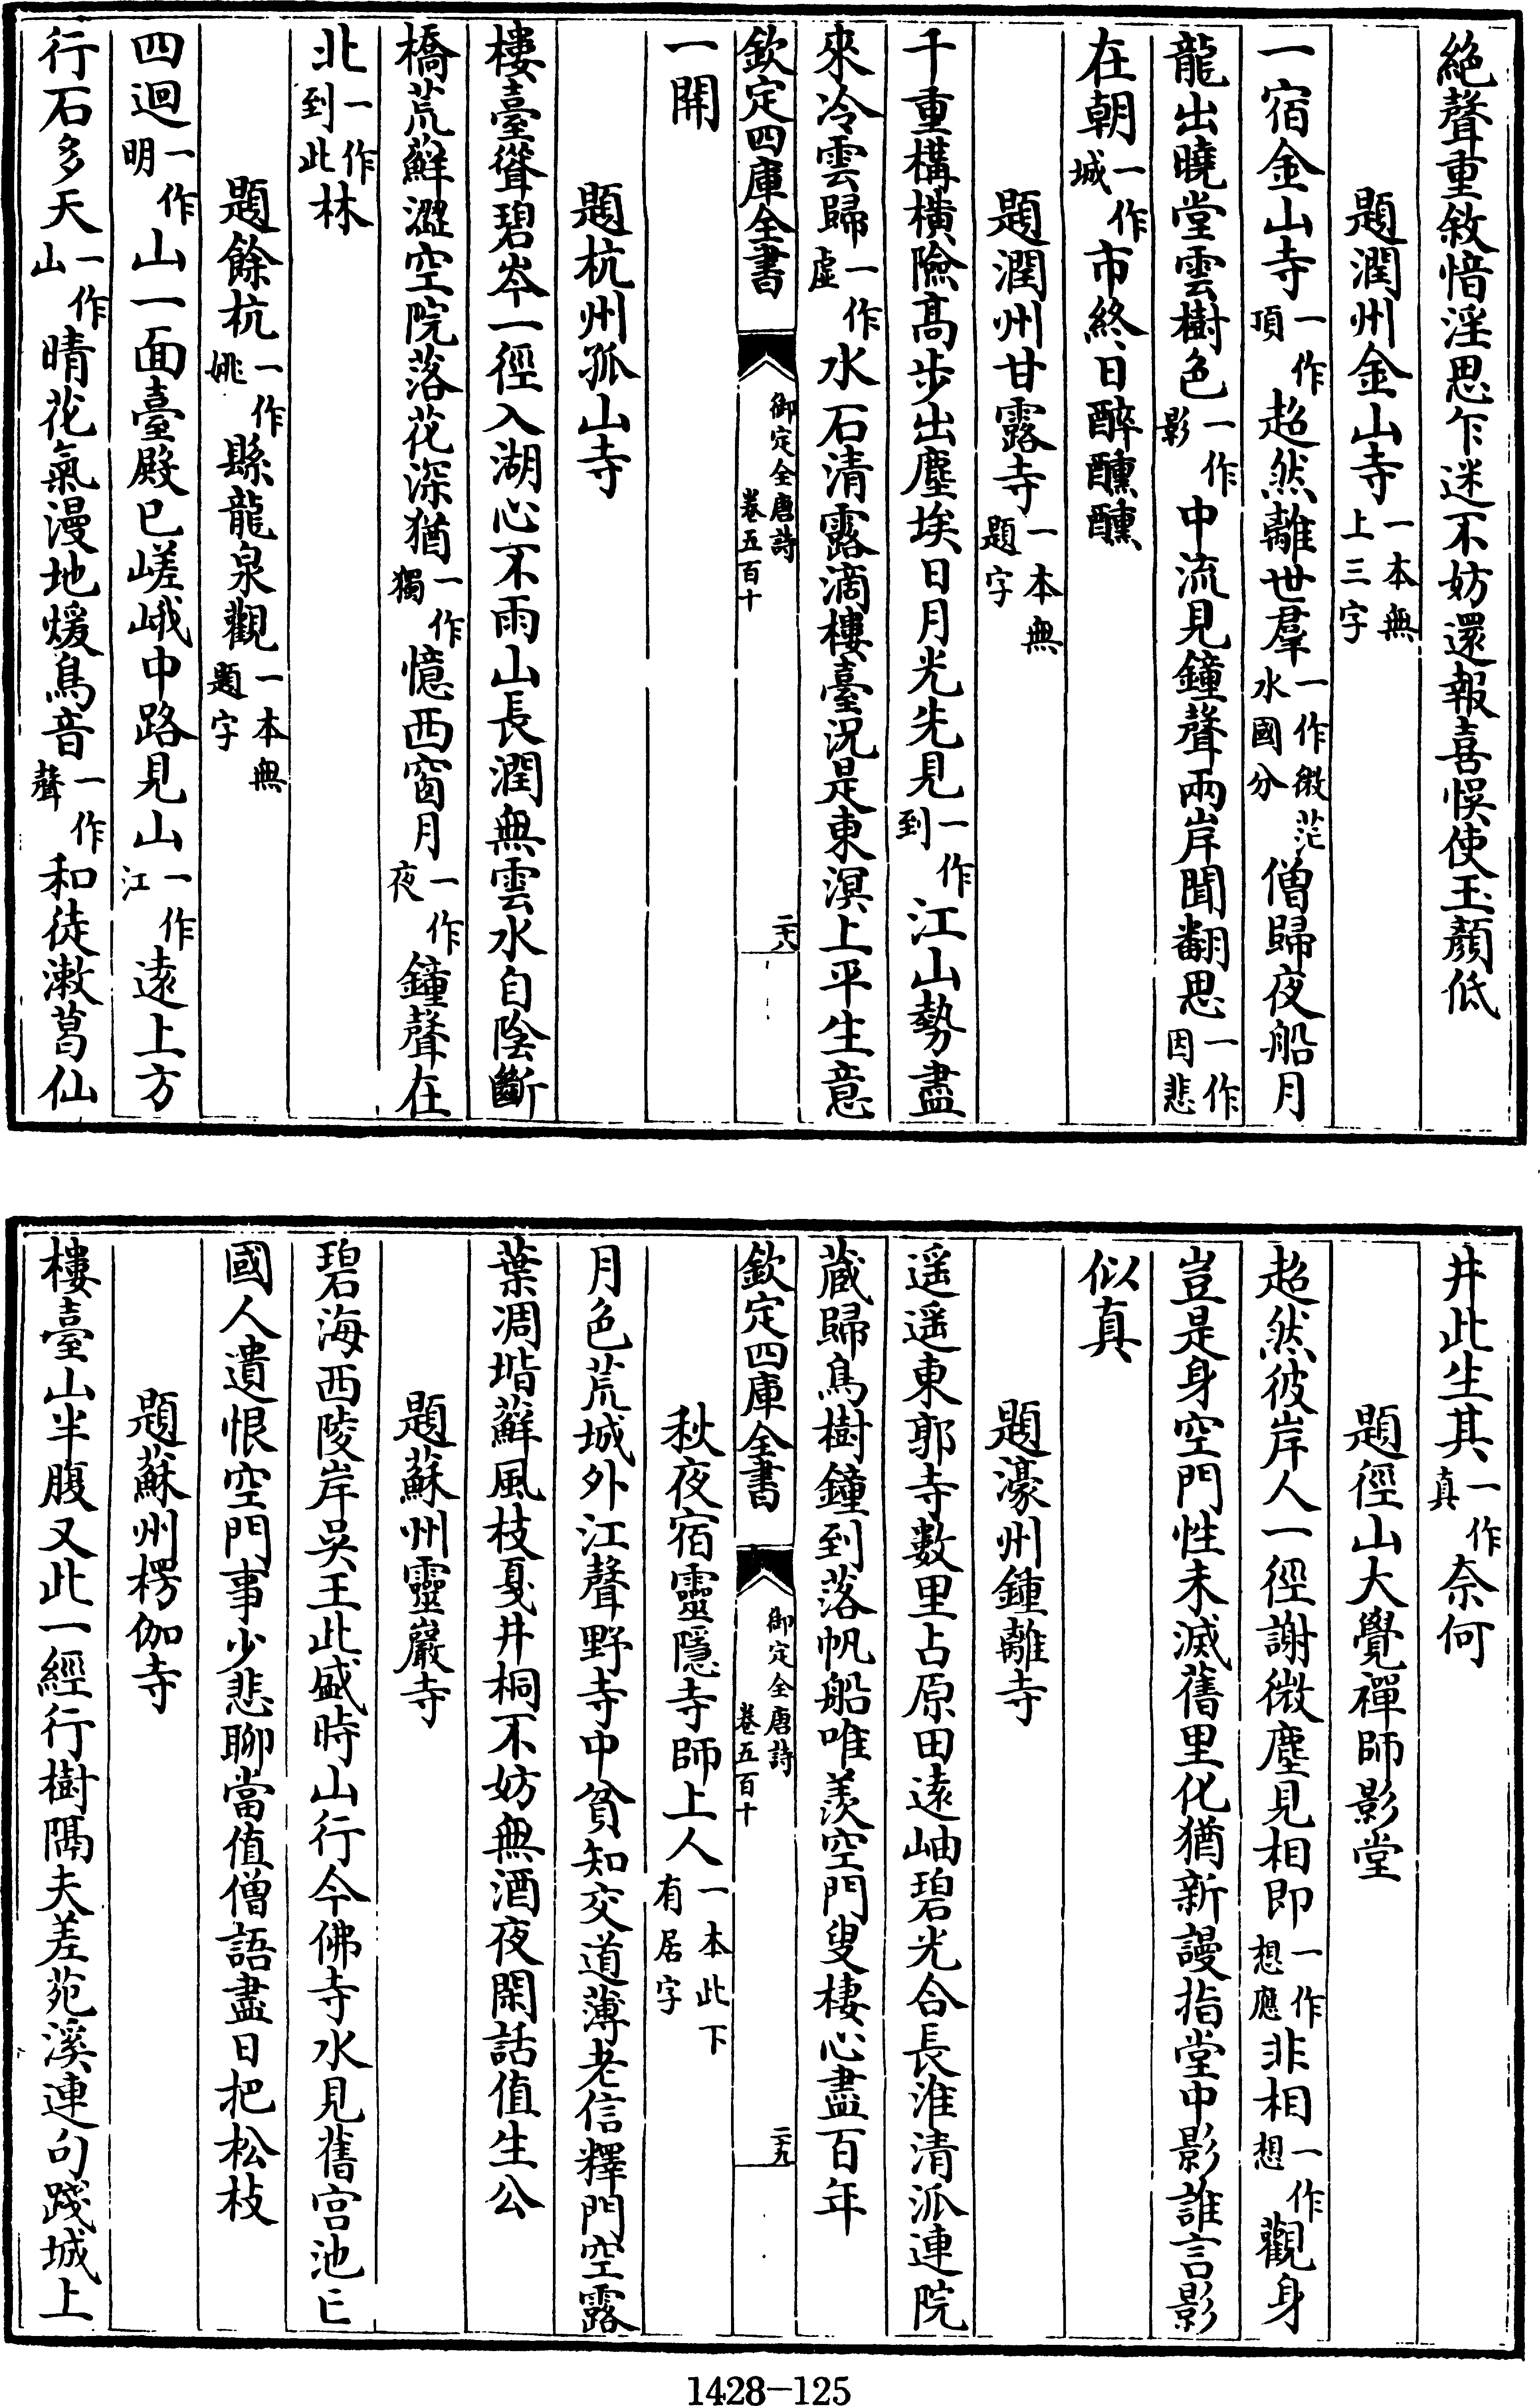 絶聲重敘愔淫思乍迷不妨還報喜悞使玉顏低
題潤州金山寺一本無上三字
一宿金山寺一作頂超然離世羣一作微茫水國分僧歸夜船月
龍出曉堂雲樹色一作影中流見鐘聲兩岸聞翻思一作因悲
在朝一作城市終日醉醺醺
題潤州甘露寺一本無題字
千重構橫險髙步出塵埃日月光先見一作到江山勢盡
來冷雲歸一作虛水石清露滴樓臺況是東溟上平生意
欽定四庫全書 御定全唐詩卷五百十 二十八
一開
題杭州孤山寺
樓臺聳碧岑一徑入湖心不雨山長潤無雲水自陰斷
橋荒蘚澀空院落花深猶一作獨憶西窗月一作夜鐘聲在
北一作到此林
題餘杭一作姚縣龍泉觀一本無題字
四迴一作明山一面臺殿已嵯峨中路見山一作江遠上方
行石多天一作山晴花氣漫地煖鳥音一作聲和徒漱葛仙
井此生其一作真奈何
題徑山大覺禪師影堂
超然彼岸人一徑謝微塵見相即一作想應非相一作想觀身
豈是身空門性未滅舊里化猶新謾指堂中影誰言影
似真
題濠州鍾離寺
遥遥東郭寺數里占原田遠岫碧光合長淮清派連院
藏歸鳥樹鐘到落帆船唯羨空門叟棲心盡百年
欽定四庫全書 御定全唐詩卷五百十 二十九
秋夜宿靈隱寺師上人一本此下有居字
月色荒城外江聲野寺中貧知交道薄老信釋門空露
葉凋堦蘚風枝戛井桐不妨無酒夜閑話值生公
題蘇州靈巖寺
碧海西陵岸吳王此盛時山行今佛寺水見舊宮池亡
國人遺恨空門事少悲聊當值僧語盡日把松枝
題蘇州楞伽寺
樓臺山半腹又此一經行樹隔夫差苑溪連句踐城上
1428-125